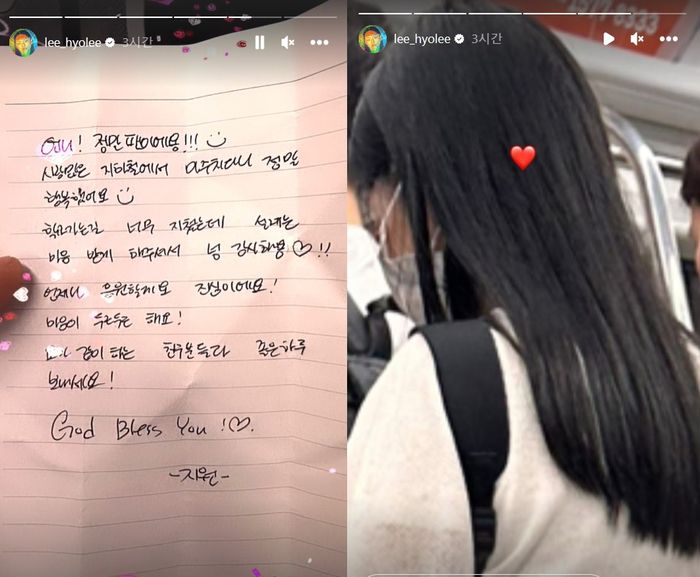 lee_hyolee 3시간
언니! 정말 팬이에용!!!
사람많은 지하철에서 마주치다니 정말
행복했어요
학교가는길 너무 지쳤는데 설레는
마음 받게 해주셔서 넘 감사해용♡!!
언제나 응원할게요 진심이에요!
마음이 두근두근 해요!
같이 하는 친구분들과 좋은하루
보내세요!
God Bless You!♡.
-지원-
lee_hyolee 3시간